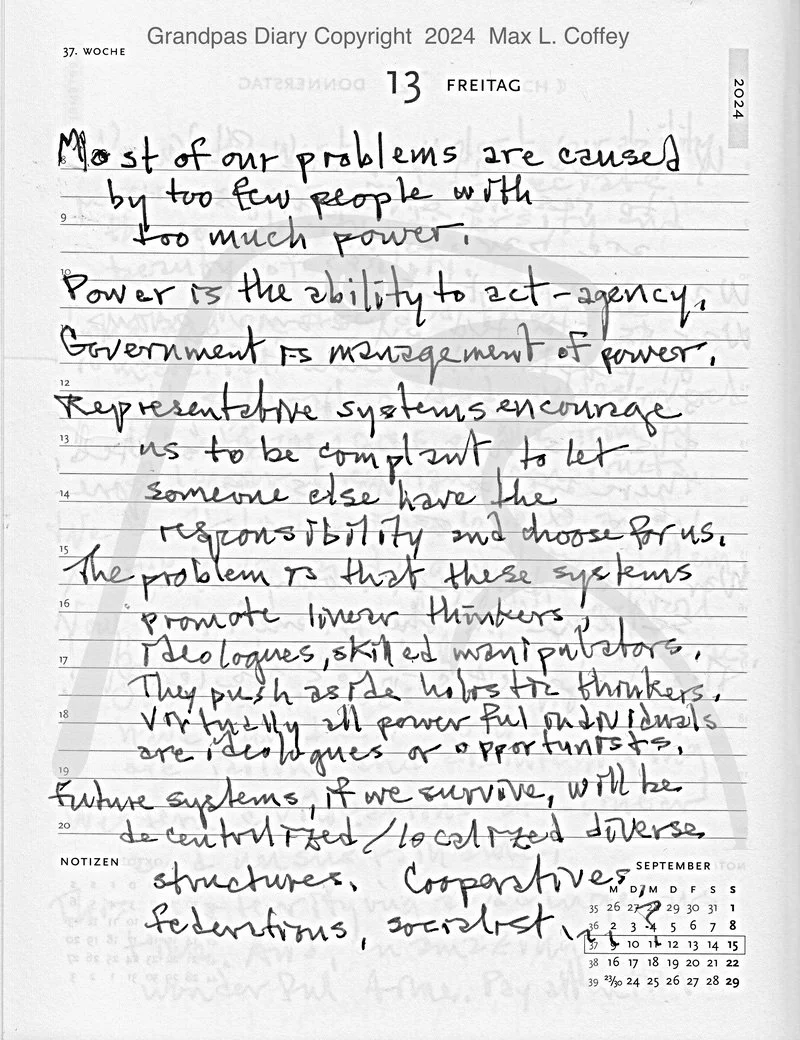 Grandpas Diary Copyright 2024 Max L. Coffey
37. WOCHE
13 FREITAG
2024
Most of our problems are caused
8
by too few people with
9
too much power.
10
Power is the ability to act - agency.
Government is management of power.
12
Representative systems encourage
13
us to be complant to let
14
someone else have the
responsibility and choose for us.
15
The problem is that these systems
16
promote linear thinkers,
ideologues, skilled manipulators.
17
They push aside holistic thinkers.
18
Virtually all powerful individuals
are ideologues or opportunists.
19
Future systems, if we survive, will be
20
decentralized/localized diverse
NOTIZEN
structures. Cooperatives,
federations, socialist...?
SEPTEMBER
M D M D F S S
35 26 27 28 29 30 31 1
36 2 3 4 5 6 7 8
37 9 10 11 12 13 14 15
38 16 17 18 19 20 21 22
39 23/30 24 25 26 27 28 29